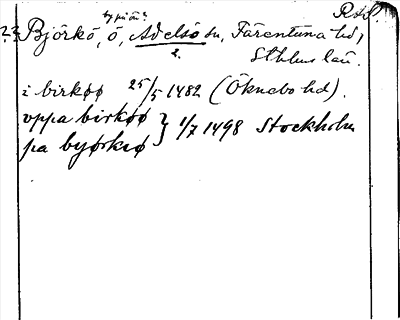 Björkö, ö, Adelsö sn, Färentuna hd,
2.
Sthlms län.
i birkøø 25/5 1482 (Öknebo hd).
vppa birkøø } 1/7 1498 Stockholm
pa byørkø